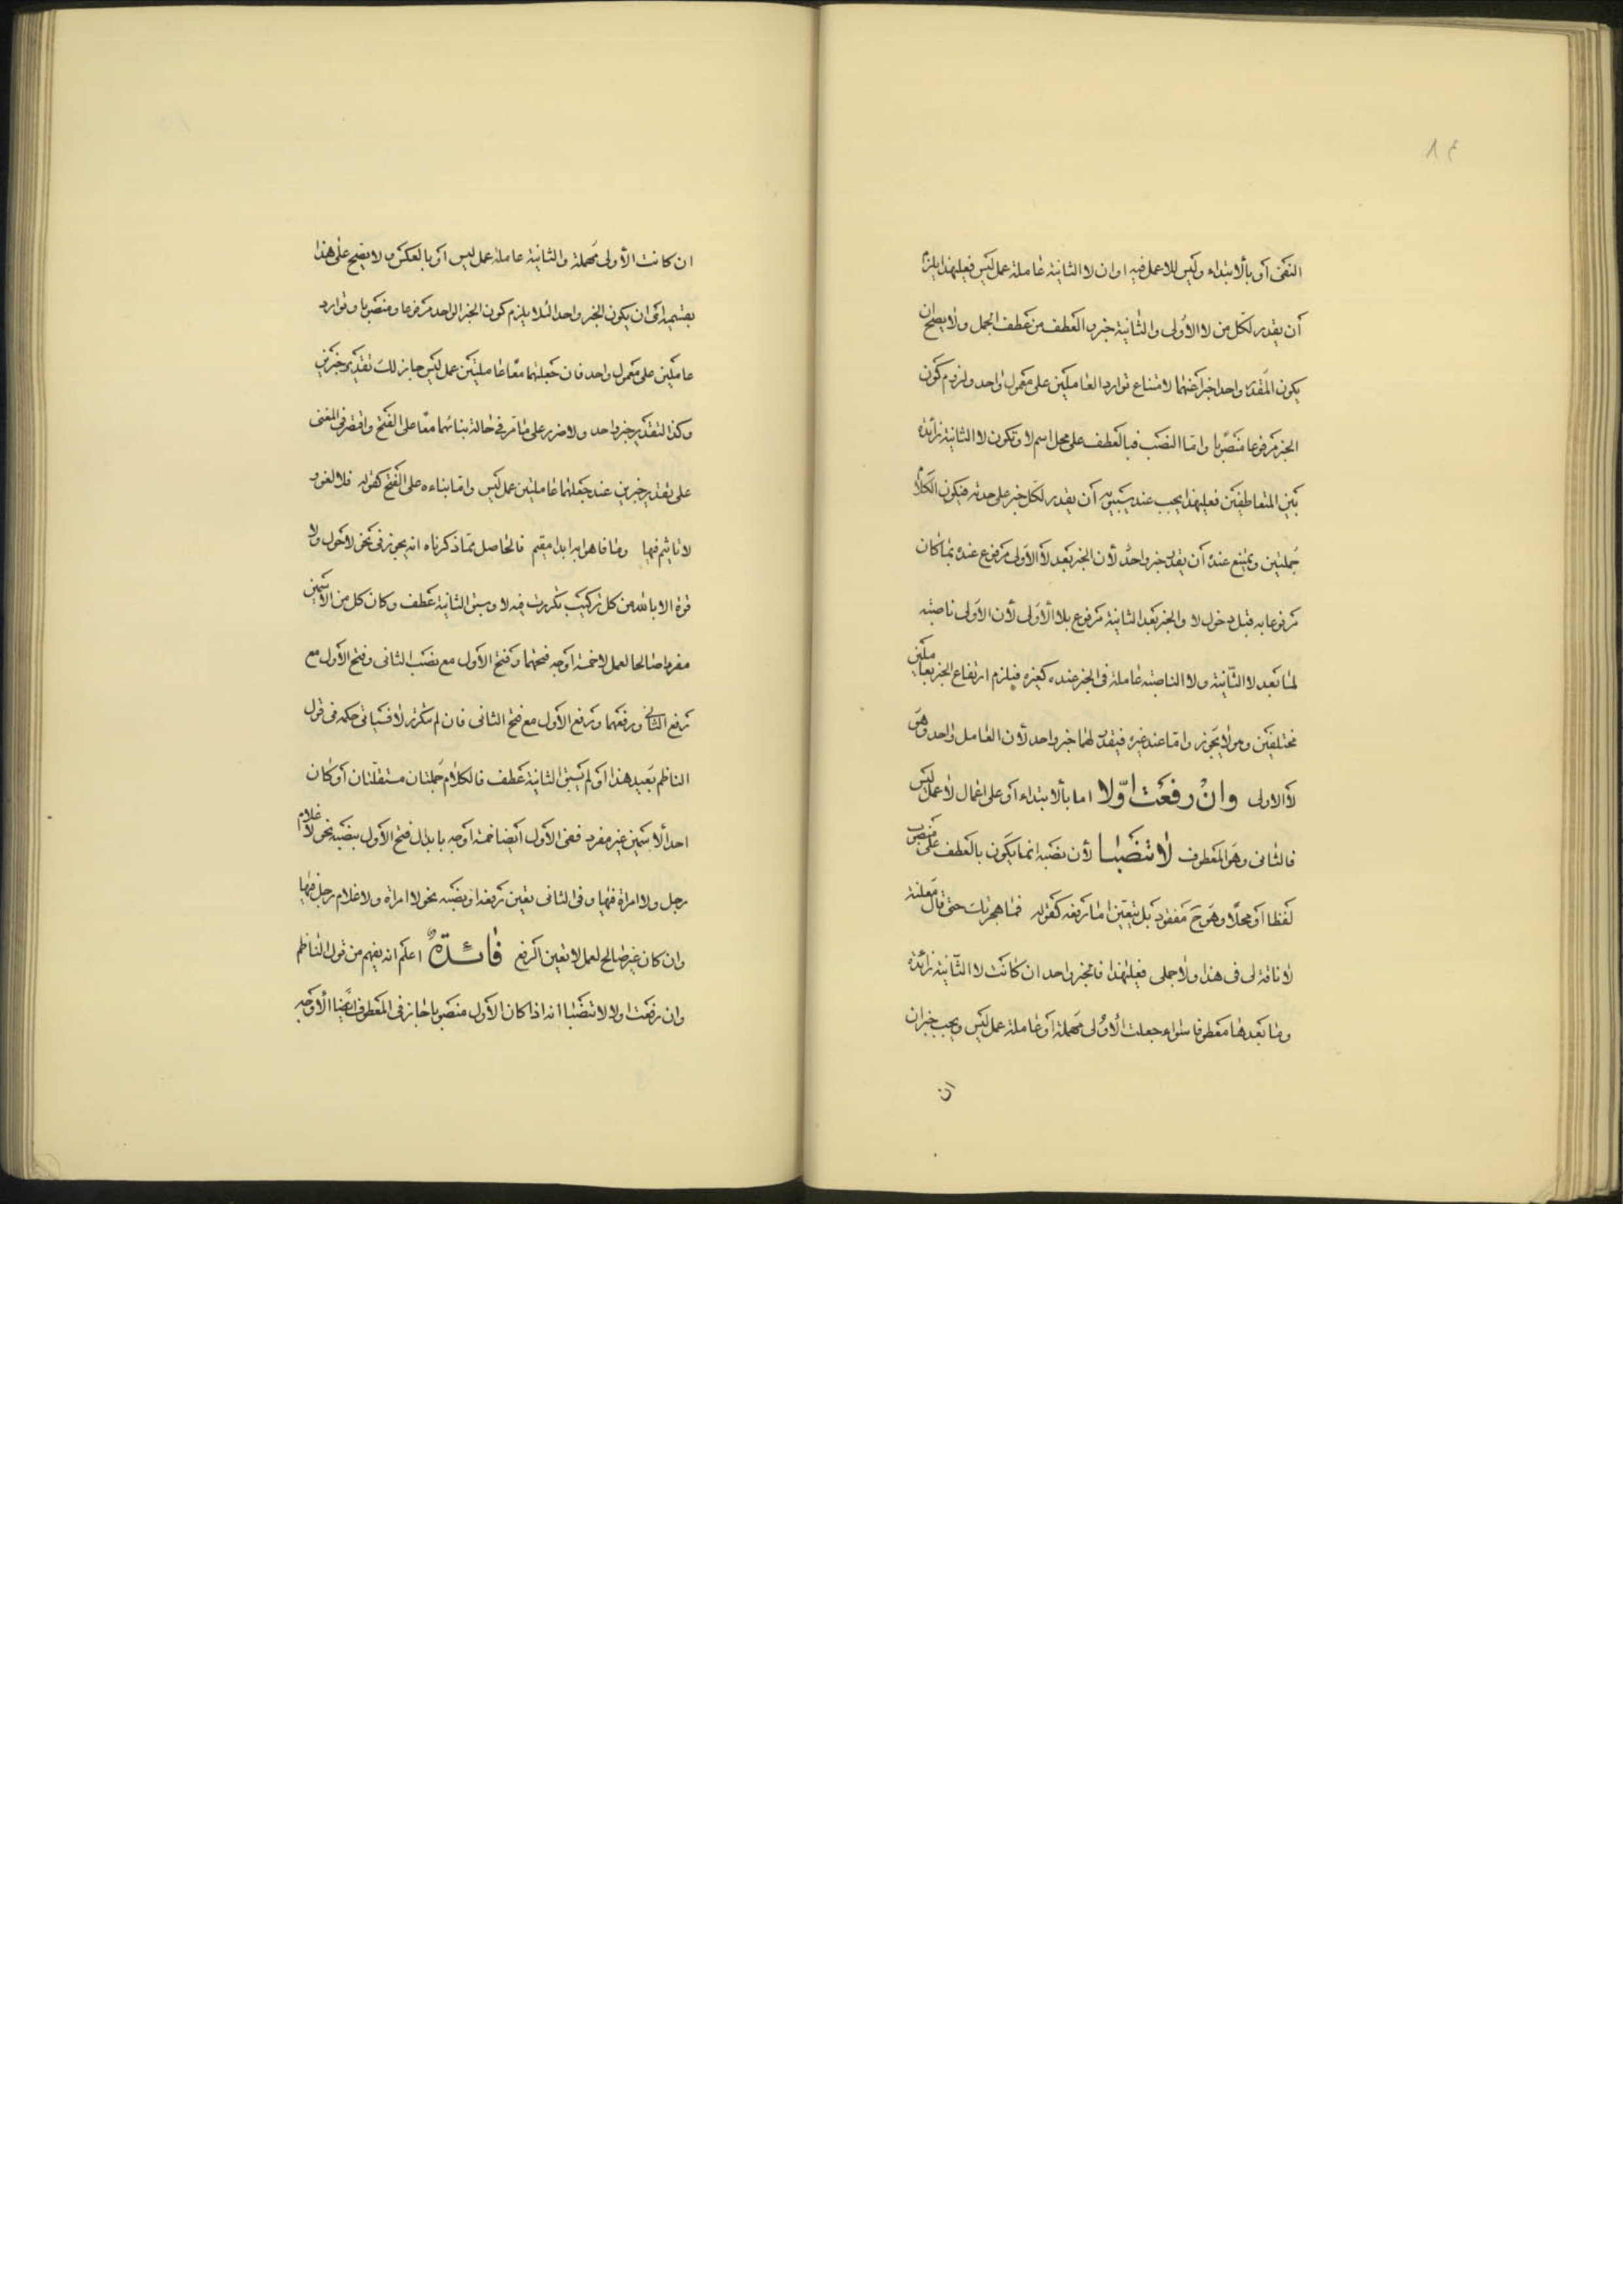 ٨٤
النفى أو بالابتداء وليس للا عمل فيه او ان لا الثانية عاملة عمل ليس فعليهذا يلزم
أن يقدر لكل من لا الأولى والثانية خبر والعطف من عطف الجمل ولا يصلح ان
يكون المقدر واحدا خبرا عنهما لامتناع توارد العاملين على معمول واحد ولزوم كون
الخبر مرفوعا منصوبا واما النصب فبالعطف على محل اسم لا وتكون لا الثانية زائدة
بين المتعاطفين فعليهذا يجب عند سيبويه أن يقدر لكل خبر على حدته فيكون الكلام
جملتين ويمتنع عنده أن يقدر خبر واحد لأن الخبر بعد لا الأولى مرفوع عنده بما كان
مرفوعا به قبل دخول لا والخبر بعد الثانية مرفوع بلا الأولى لأن الأولى ناصبة
لما بعد لا الثانية ولا الناصبة عاملة فى الخبر عنده كغيره فيلزم ارتفاع الخبر بعاملين
مختلفين وهو لا يجوز واما عند غيره فيقدر لهما خبر واحد لأن العامل واحد وهو
لا الاولى وان رفعت اولا اما بالابتداء أو على اعمال لا عمل ليس
فالثانى وهو المعطوف لا تنصبا لأن نصبه انما يكون بالعطف على منصوب
لفظا أو محلا وهو ح مفقود بل يتعين اما رفعه كقوله فما هجرتك حتى قلت معلنة
لا ناقة لى فى هذا ولا جملى فعليهذا فالخبر واحد ان كانت لا الثانية زائدة
وما بعدها معطوفا سواء جعلت الأولى مهملة أو عاملة عمل ليس ويجب خبران
ان
ان كانت الأولى مهملة والثانية عاملة عمل ليس او بالعكس ولا يصح على هذا
بقسميه اى ان يكون الخبر واحدا لئلا يلزم كون الخبر الواحد مرفوعا ومنصوبا وتوارد
عاملين على معمول واحد فان جعلتهما معا عاملتين عمل ليس جاز لك تقدير خبرين
وكذا التقدير خبر واحد ولا ضرر على ما مر فى حالة بنائهما معا على الفتح واقتصر فى المغنى
على تقدير خبرين عند جعلهما عاملتين عمل ليس واما بناءه على الفتح كقوله فلا لغو و
لا تاثيم فيها وما فاهوا به ابدا مقيم فالحاصل مما ذكرناه انه يجوز فى نحو لا حول ولا
قوة الا بالله من كل تركيب تكررت فيه لا وسبق الثانية عطف وكان كل من الاسمين
مفردا صالحا لعمل لا خمسة أوجه فتحهما وفتح الأول مع نصب الثانى وفتح الأول مع
رفع الثانى ورفعهما ورفع الأول مع فتح الثانى فان لم تتكرر لا فسياتى حكمه فى قول
الناظم بعيد هذا او لم يسبق الثانية عطف فالكلام جملتان مستقلتان أو كان
احد الاسمين غير مفرد ففى الأول أيضا خمسة اوجه بابدال فتح الأول بنصبه نحو لا غلام
رجل ولا امراة فيها وفى الثانى يتعين رفعه او نصبه نحو لا امراة ولا غلام رجل فيها
وان كان غير صالح لعمل لا تعين الرفع فائدة اعلم انه يفهم من قول الناظم
وان رفعت اولا لا تنصبا انه اذا كان الأول منصوبا جاز فى المعطوف أيضا الأوجه